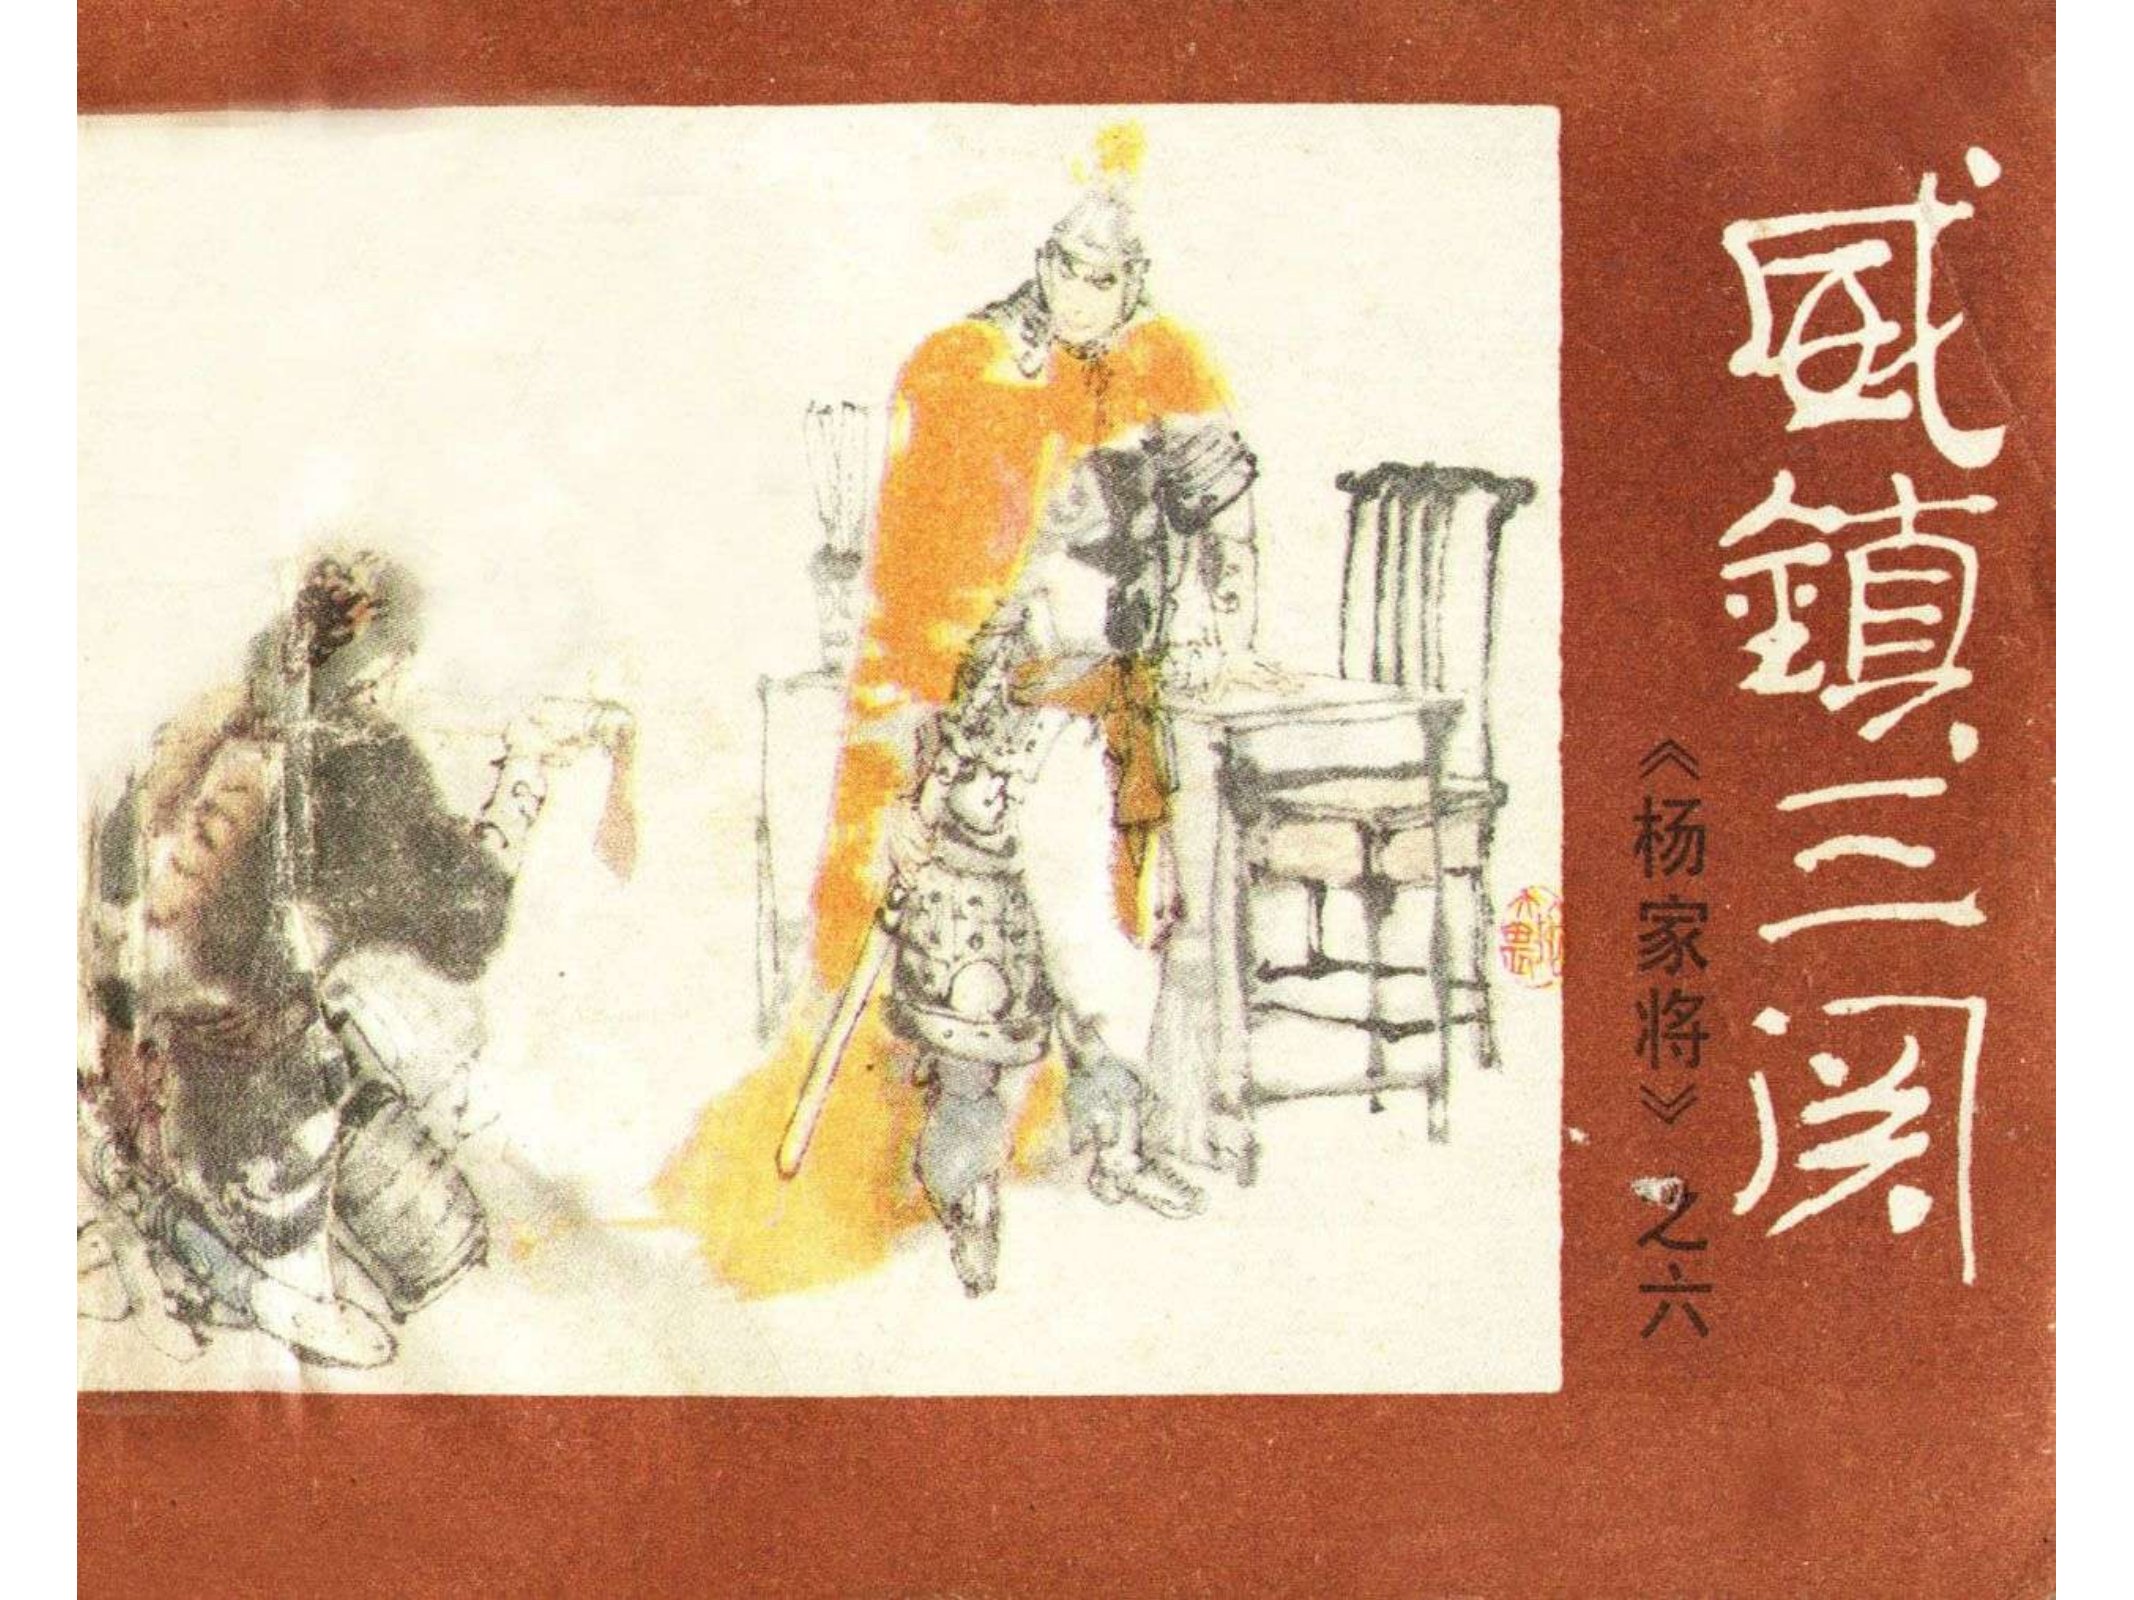 威鎮三関
《杨家将》之六